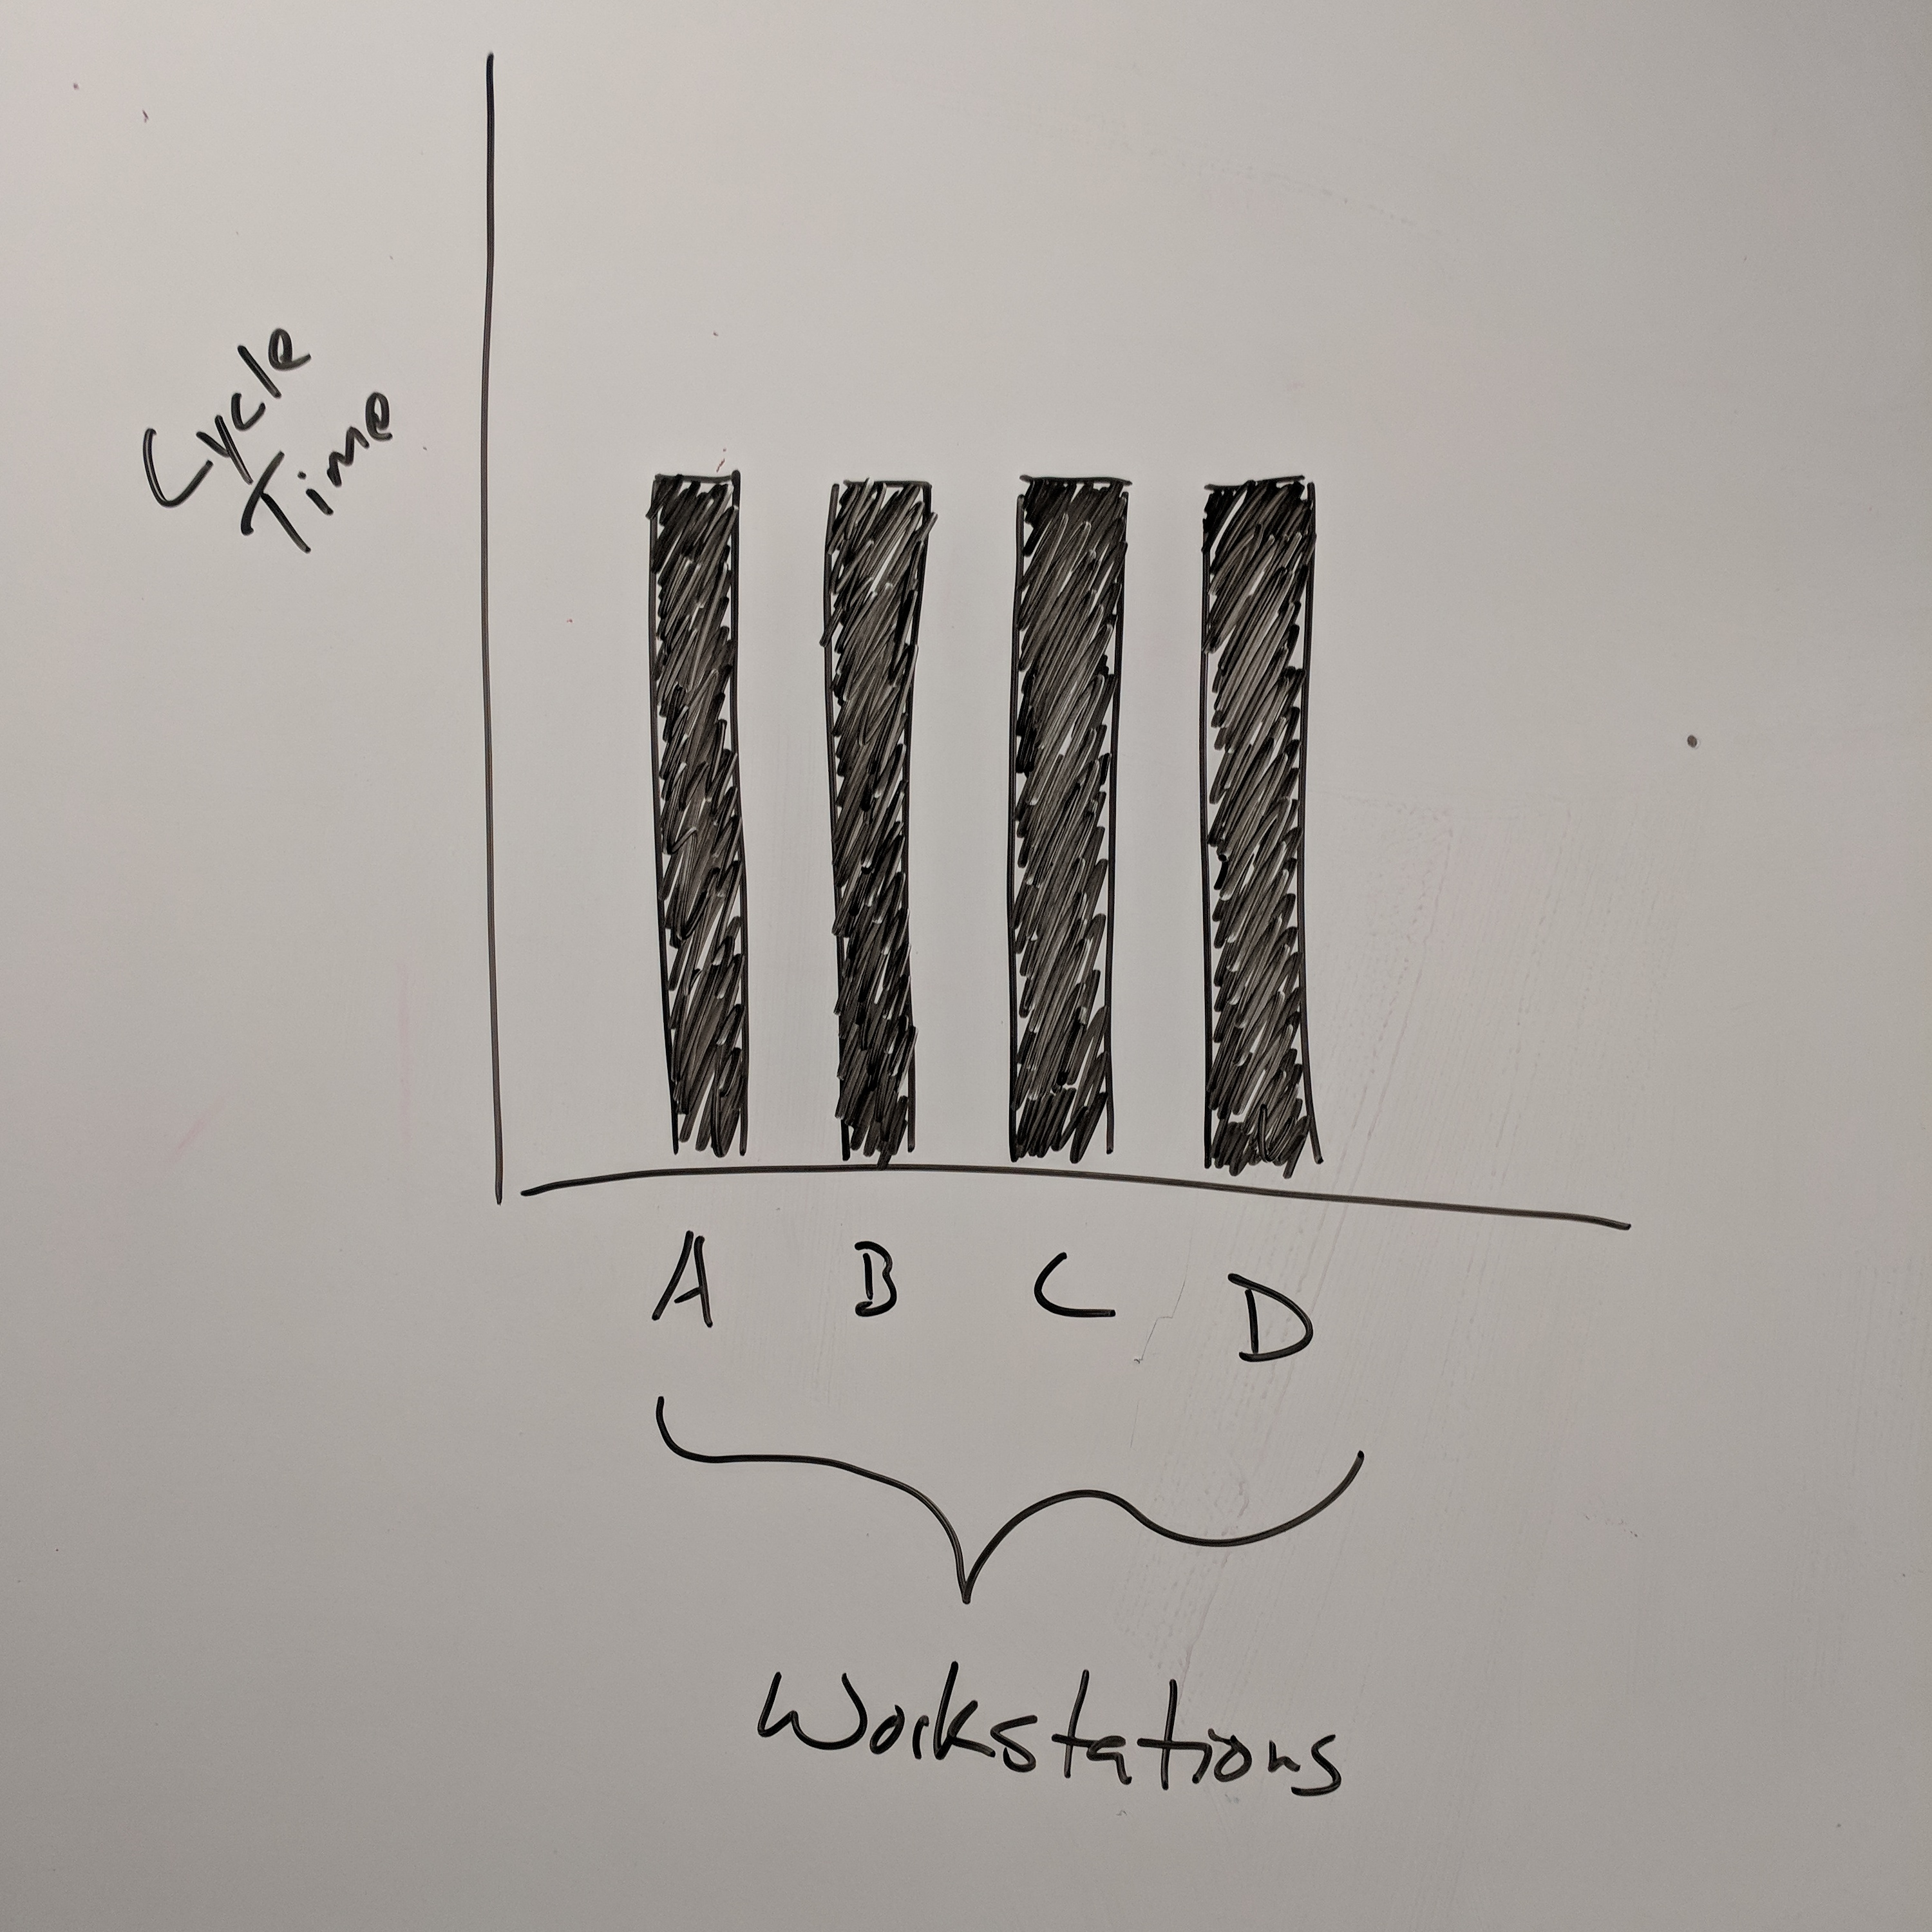 Cycle
Time
A B C D
Workstations